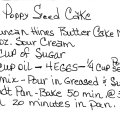 Poppy Seed Cake
uncan Hines Butter Cake M
oz. Sour Cream
cup of Sugar
cup oil - 4 EGGS - 1/4 cup
mix - Pour in Greased & S
dt Pan - Bake 50 min. @ 3
20 minutes in pan.